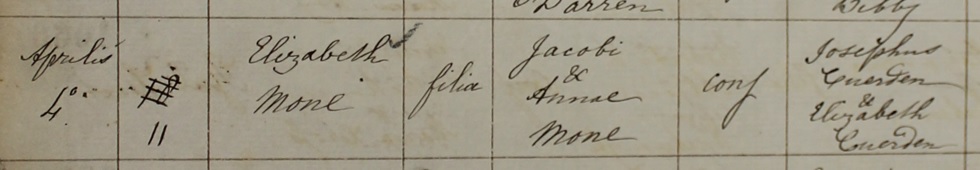 Darren
Bibby
Aprilis
4º
11
Elizabeth
Mone
filia
Jacobi
&
Annae
Mone
conf
Josephus
Cuerden
&
Elizabeth
Cuerden